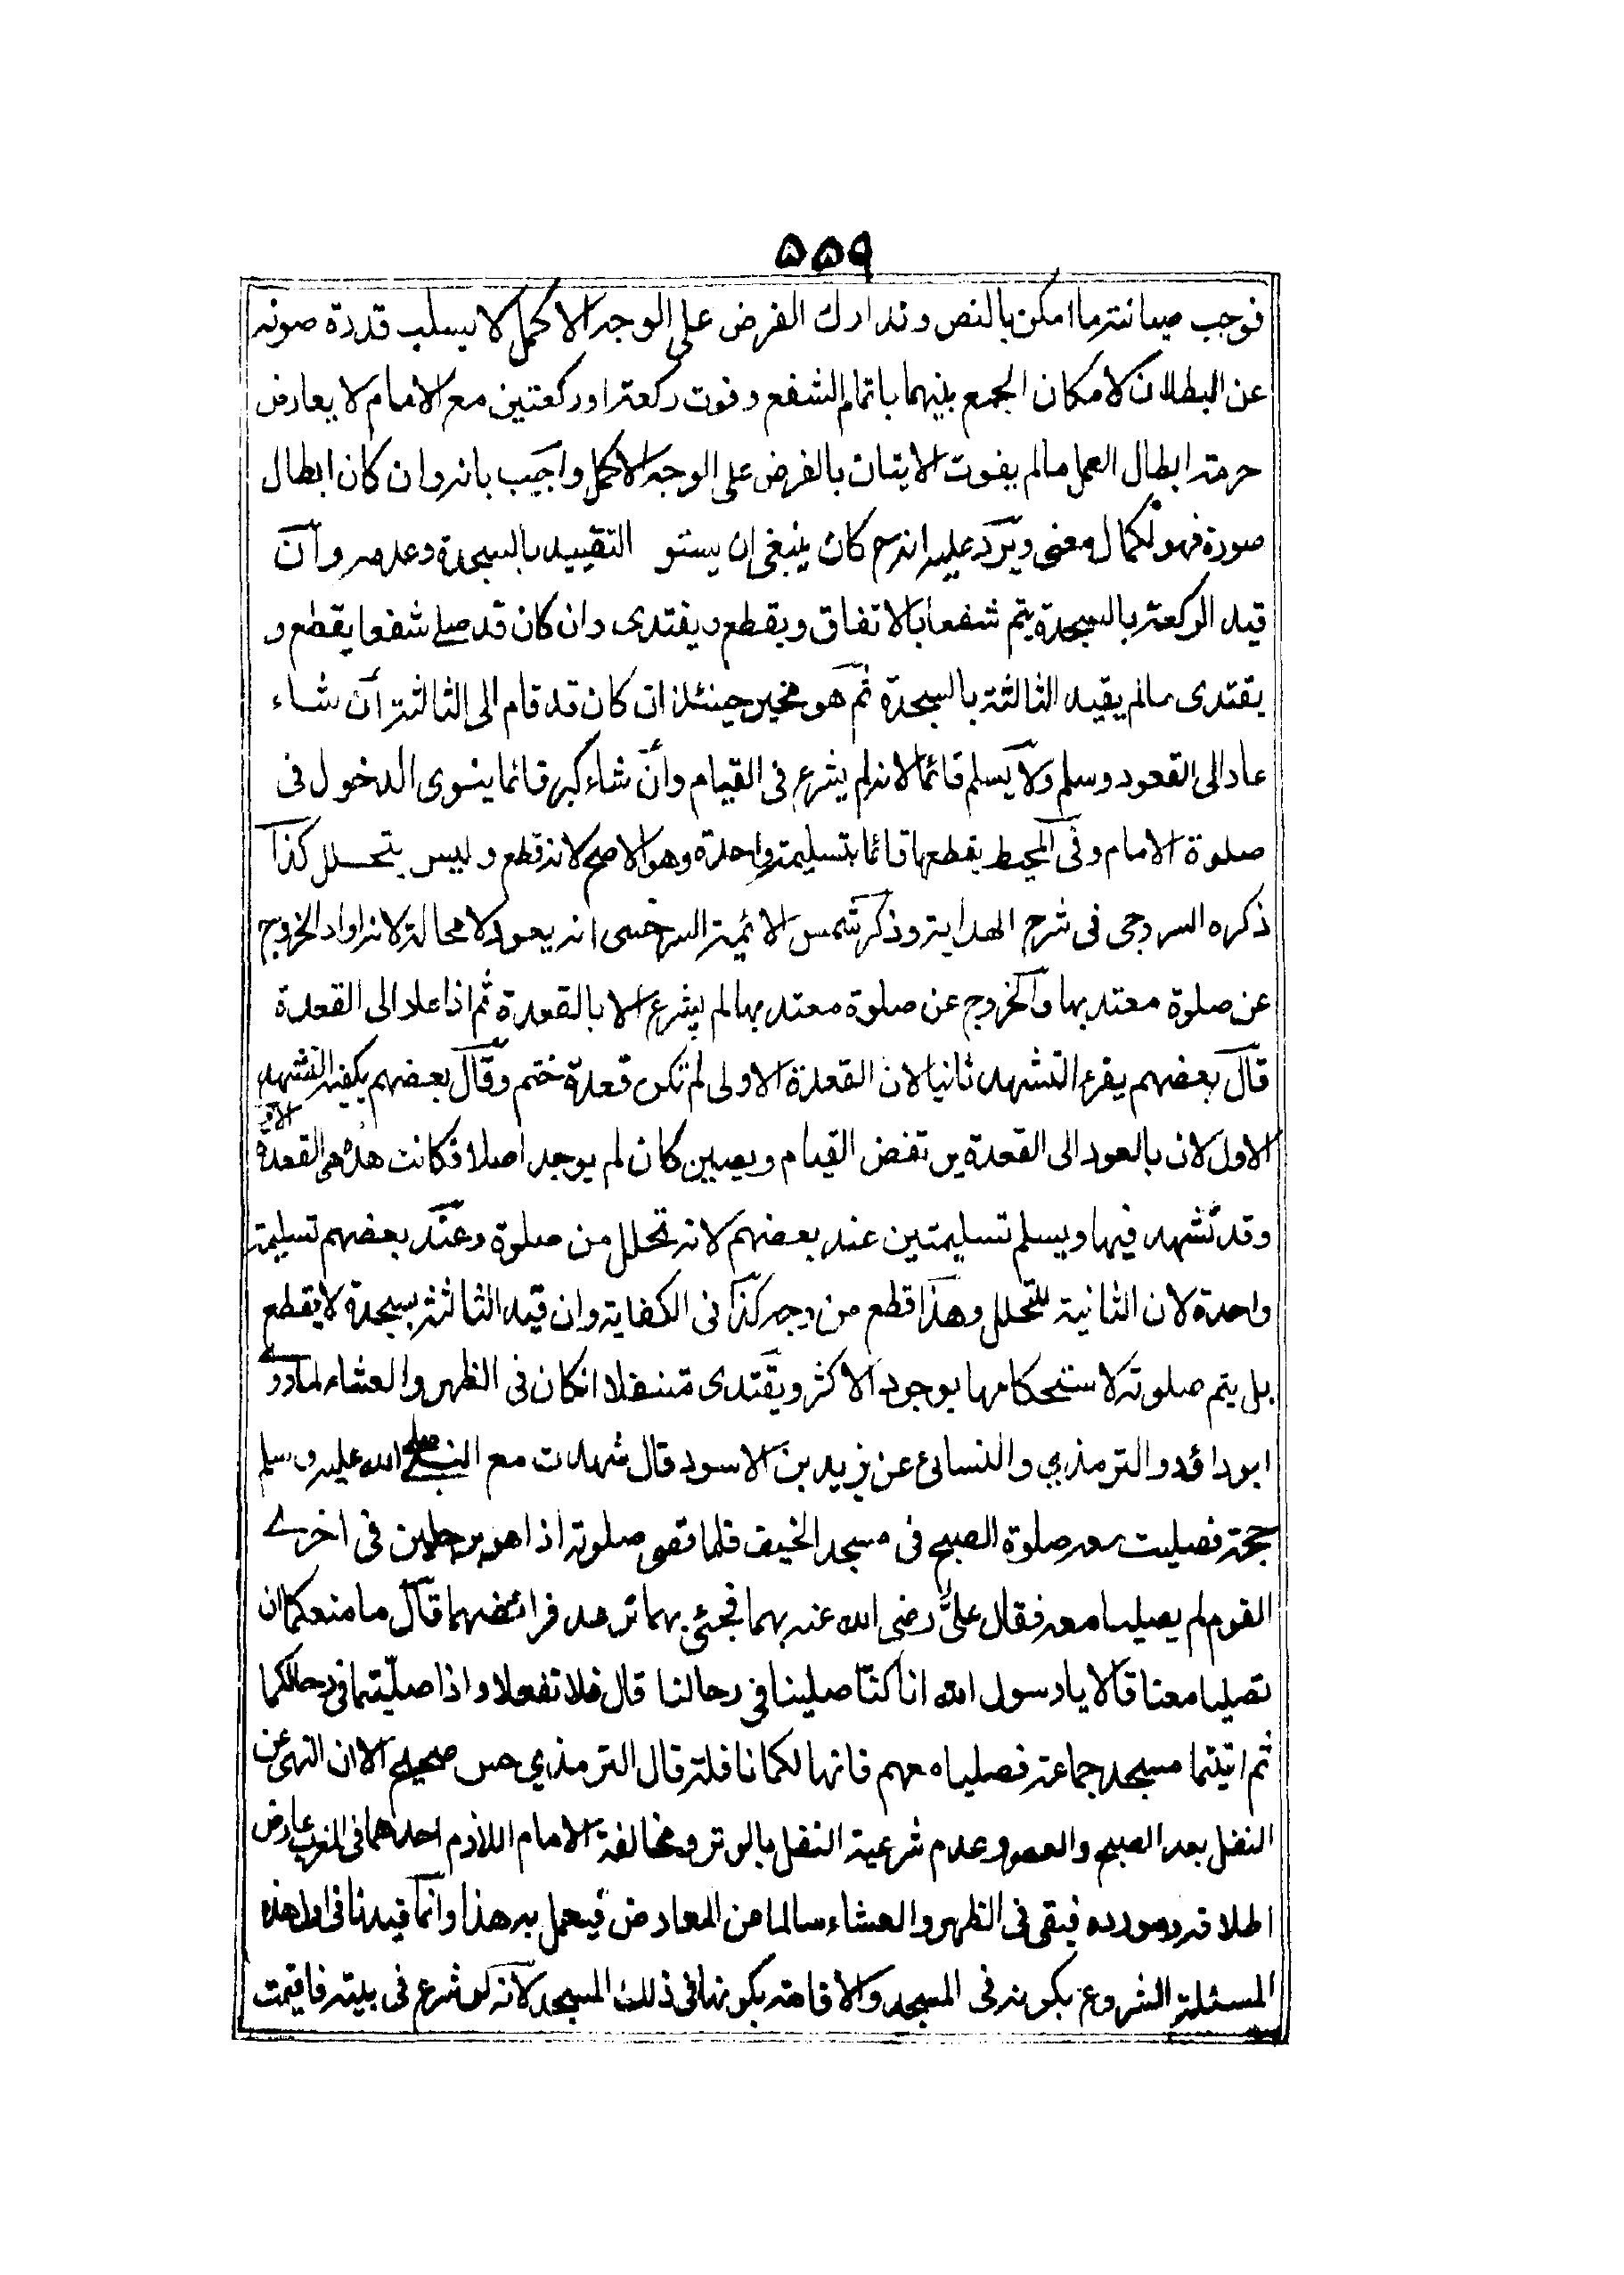 ۵۵۹
فوجب صيانته ما امكن بالنص وتدارك الفرض على الوجه الاكمل لا يسلب قدرة صونه
عن البطلان لامكان الجمع بينهما باتمام الشفع وفوت ركعة او ركعتين مع الامام لا يعارض
حرمة ابطال العمل مالم يفوت الاتيان بالفرض على الوجه الاكمل واجيب بانه وان كان ابطال
صورة فهو كمال معنى ويرد عليه انه ح كان ينبغى ان يستو التقييد بالسجدة وعدمه وان
قيد الركعة بالسجدة يتم شفعا بالاتفاق ويقطع ويقتدى وان كان قد صلے شفعا يقطع و
يقتدى مالم يقيد الثالثة بالسجدة ثم هو مخير حينئذ ان كان قد قام الى الثالثة ان شاء
عاد الى القعود وسلم ولا يسلم قائما لانه لم يشرع فى القيام وان شاء كبر قائما ينوى الدخول فى
صلوة الامام وفى المحيط يقطعها قائما بتسليمة واحدة وهو الاصح لانه قطع وليس بتحلل كذا
ذكره السروجى فى شرح الهداية وذكر شمس الائمة السرخسى انه يعود لا محالة لانه اراد الخروج
عن صلوة معتد بها والخروج عن صلوة معتد بها لم يشرع الا بالقعدة ثم اذا عاد الى القعدة
قال بعضهم يقرء التشهد ثانيا لان القعدة الاولى لم تكن قعدة ختم وقال بعضهم يكفيه التشهد
الاول لان بالعود الى القعدة يرتفض القيام ويصير كان لم يوجد اصلا فكانت هذه هى القعدة
وقد تشهد فيها ويسلم تسليمتين عند بعضهم لانه تحلل من صلوة وعند بعضهم تسليمة
واحدة لان الثانية للتحلل وهذا قطع من وجه كذا فى الكفاية وان قيد الثالثة بسجدة لا يقطع
بل يتم صلوته لاستحكامها بوجود الاكثر ويقتدى متنفلا انكان فى الظهر والعشاء لما روے
ابو داؤد والترمذي والنسائ عن يزيد بن الاسود قال شهدت مع النبے صلے الله عليه وسلم
حجة فصليت معه صلوة الصبح فى مسجد الخيف فلما قضى صلوته اذا هو برجلين فى اخرے
القوم لم يصليا معه فقال علىَّ رضى الله عنه بهما فجئ بهما ترعد فرائضهما قال ما منعكما ان
تصليا معنا قالا يا رسول الله انا كنّا صلينا فى رحالنا قال فلا تفعلا واذا صلّيتما فى رحالكما
ثم اتيتما مسجد جماعة فصلياه معهم فانها لكما نافلة قال الترمذي حسن صحيح الا ان النهى عن
النفل بعد الصبح والعصر وعدم شرعية النفل بالوتر ومخالفة الامام اللازم احدهما فى المغرب عارض
اطلاقه ومورده فبقى فى الظهر والعشاء سالما من المعارض فيعمل به هذا وانما قيدنا فى اول هذه
المسئلة الشروع بكونه فى المسجد والاقامة بكونها فى ذلك المسجد لانه لو شرع فى بيته فاقيمت